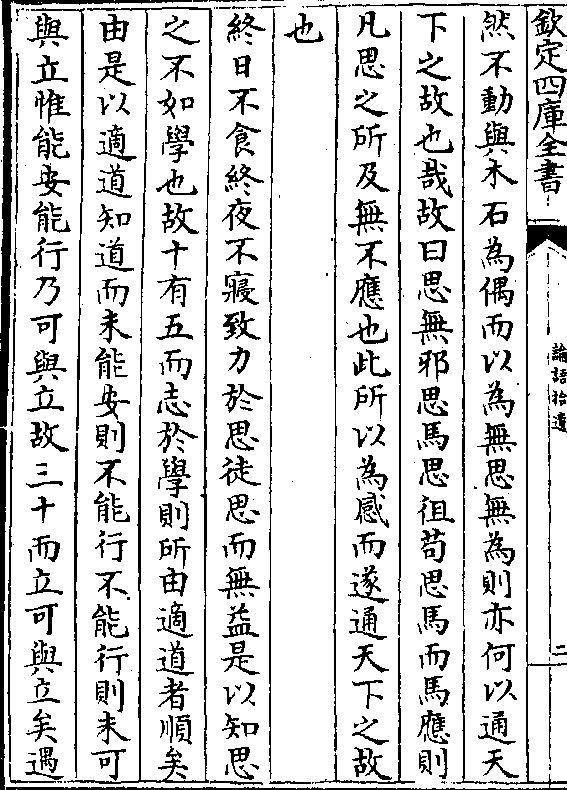 欽定四庫全書
論語拾遺
二
然不動與木石為偶而以為無思無為則亦何以通天
下之故也哉故曰思無邪思馬思徂苟思馬而馬應則
凡思之所及無不應也此所以為感而遂通天下之故
也
終日不食終夜不寢致力於思徒思而無益是以知思
之不如學也故十有五而志於學則所由適道者順矣
由是以適道知道而未能安則不能行不能行則未可
與立惟能安能行乃可與立故三十而立可與立矣遇